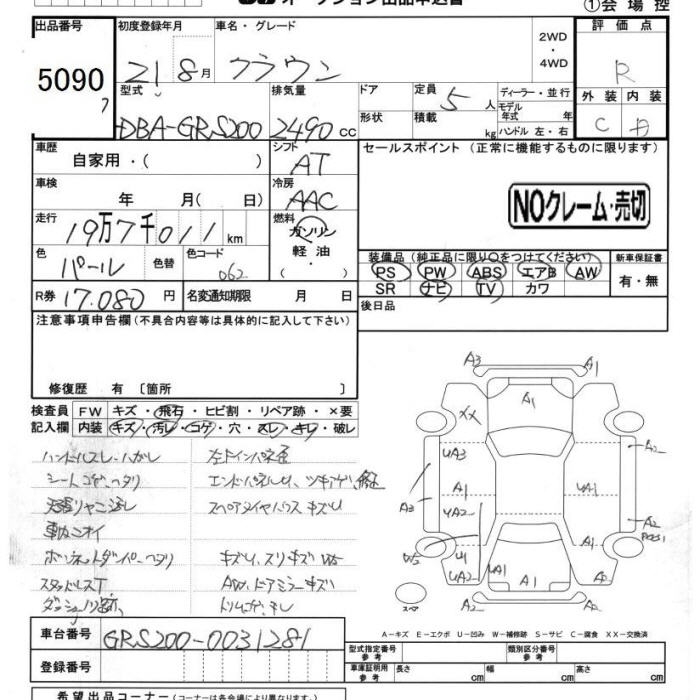 ①会場控
出品番号
5090
初度登録年月
21年8月
車名・グレード
クラウン
2WD
・
4WD
評価点
R
外装 内装
C D
型式
DBA-GRS200
排気量
2490 cc
ドア
形状
定員
5人
積載
kg
ディーラー・並行
モデル年式 年
ハンドル 左・右
車歴
自家用・( )
シフト
AT
車検
年 月( 日)
冷房
AAC
走行
19万7千011km
燃料
ガソリン
軽油
・( )
色
パール
色替
色コード
062
R券 17.080 円
名変通知期限 月 日
セールスポイント(正常に機能するものに限ります)
NOクレーム・売切
装備品(純正品に限り○をつけてください)
PS PW ABS エアB AW
SR ナビ TV カワ
新車保証書
有・無
後日品
注意事項申告欄(不具合内容等は具体的に記入して下さい)
修復歴 有〔箇所 〕
検査員
記入欄
FW キズ・飛石・ヒビ割・リペア跡・×要
内装 キズ・汚レ・コゲ・穴・スレ・キレ・破レ
ハンドルスレ・ハガレ
シートコゲ・ヘタリ
車内ニオイ
ボンネットダンパーヘタリ
スタッドレスT
A3
A1
A1
XX
UA3
A1
UA2
A3
W5
U1
UA2
UA1
A1
A1
A2
UA1
A2
A2
スペア
A-キズ E-エクボ U-凹み W-補修跡 S-サビ C-腐食 XX-交換済
車台番号
GRS200-0031281
登録番号
型式指定番号
参考
類別区分番号
参考
車庫証明用
参考
長さ cm
幅 cm
高さ cm
希望出品コーナー(コーナーは各会場により異なります。)